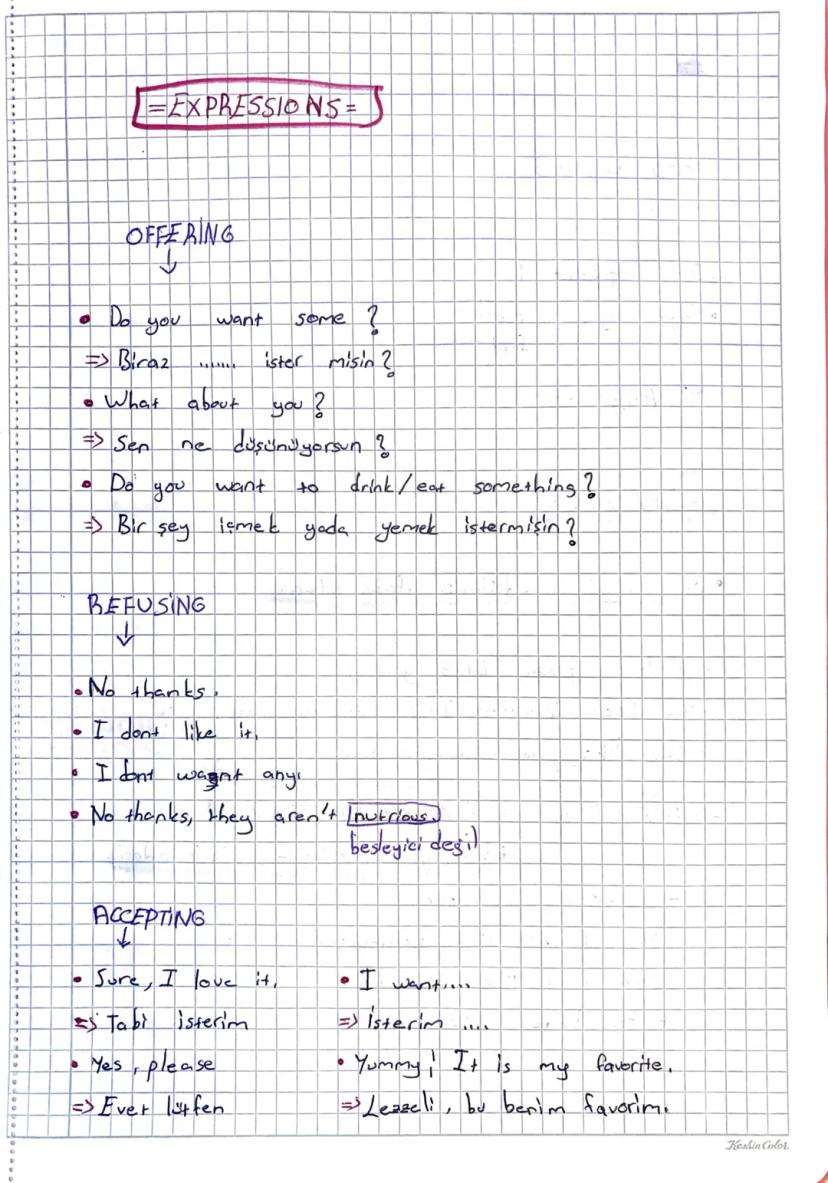 =EXPRESSIONS=
OFFERİNG
↓
• Do you want some ?
=> Biraz ....... ister misin?
• What about you?
=> Sen ne düşünüyorsun?
• Do you want to drink/eat something?
=> Bir şey içmek yada yemek istermişin?
REFUSİNG
↓
• No thanks.
• I dont like it.
• I dont want any.
• No thanks, they aren't nutrious.
besleyici değil
ACCEPTİNG
↓
• Sure, I love it. • I want....
=> Tabi isterim => İsterim ....
• Yes, please • Yummy! It is my favorite.
=> Evet lütfen => Lezzeli, bu benim favorim.
KeskinColor